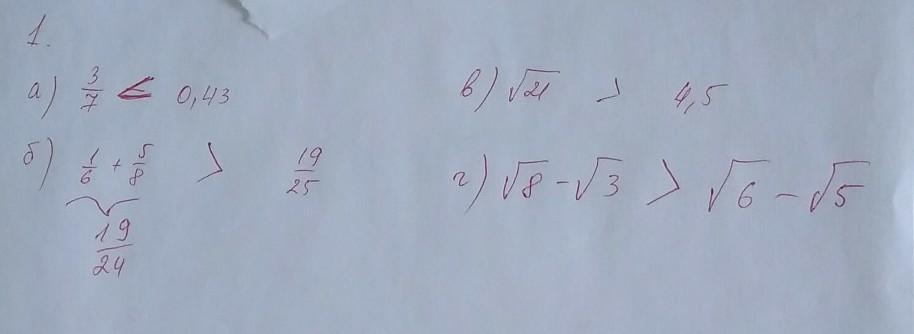 1.
а) 3/7 < 0,43
б) 1/6 + 5/8 > 19/25
19/24
в) √21 > 4,5
г) √8 - √3 > √6 - √5